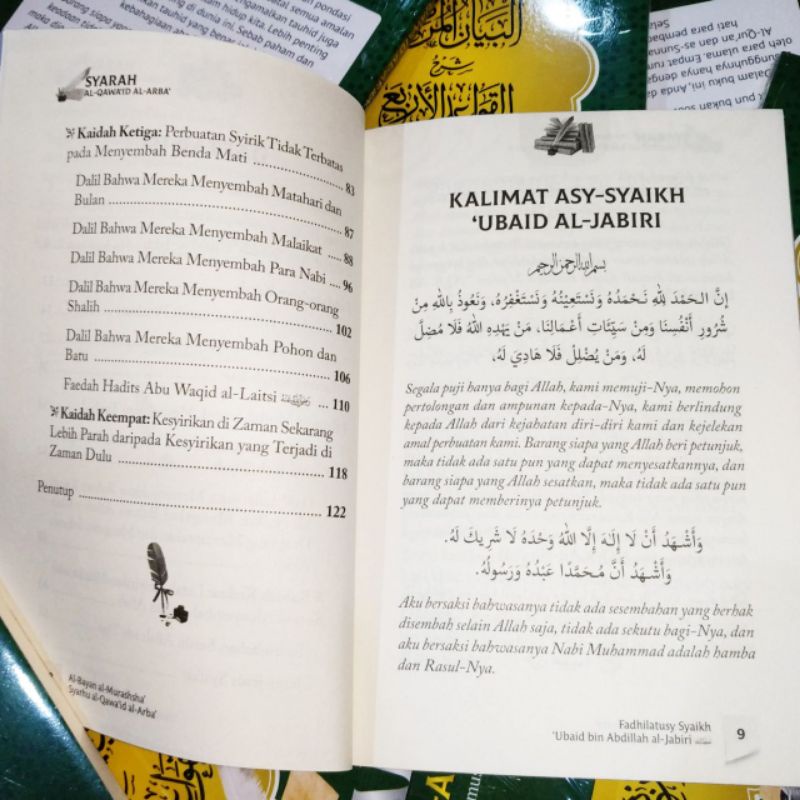 SYARAH
AL-QAWA'ID AL-ARBA'
Kaidah Ketiga: Perbuatan Syirik Tidak Terbatas
pada Menyembah Benda Mati .................... 83
Dalil Bahwa Mereka Menyembah Matahari dan
Bulan .................... 87
Dalil Bahwa Mereka Menyembah Malaikat .... 88
Dalil Bahwa Mereka Menyembah Para Nabi .... 96
Dalil Bahwa Mereka Menyembah Orang-orang
Shalih .................... 102
Dalil Bahwa Mereka Menyembah Pohon dan
Batu .................... 106
Faedah Hadits Abu Waqid al-Laitsi ... 110
Kaidah Keempat: Kesyirikan di Zaman Sekarang
Lebih Parah daripada Kesyirikan yang Terjadi di
Zaman Dulu .................... 118
Penutup .................... 122
Al-Bayan al-Murashsha'
Syarhu al-Qawa'id al-Arba'
KALIMAT ASY-SYAIKH
'UBAID AL-JABIRI
بسم الله الرحمن الرحيم
إِنَّ الْحَمْدَ لِلَّهِ نَحْمَدُهُ وَنَسْتَعِيْنُهُ وَنَسْتَغْفِرُهُ، وَنَعُوذُ بِاللَّهِ مِنْ
شُرُورِ أَنْفُسِنَا وَمِنْ سَيِّئَاتِ أَعْمَالِنَا، مَنْ يَهْدِهِ اللَّهُ فَلَا مُضِلَّ
لَهُ، وَمَنْ يُضْلِلْ فَلَا هَادِيَ لَهُ،
Segala puji hanya bagi Allah, kami memuji-Nya, memohon
pertolongan dan ampunan kepada-Nya, kami berlindung
kepada Allah dari kejahatan diri-diri kami dan kejelekan
amal perbuatan kami. Barang siapa yang Allah beri petunjuk,
maka tidak ada satu pun yang dapat menyesatkannya, dan
barang siapa yang Allah sesatkan, maka tidak ada satu pun
yang dapat memberinya petunjuk.
وَأَشْهَدُ أَنْ لَا إِلَهَ إِلَّا اللَّهُ وَحْدَهُ لَا شَرِيكَ لَهُ.
وَأَشْهَدُ أَنَّ مُحَمَّدًا عَبْدُهُ وَرَسُولُهُ.
Aku bersaksi bahwasanya tidak ada sesembahan yang berhak
disembah selain Allah saja, tidak ada sekutu bagi-Nya, dan
aku bersaksi bahwasanya Nabi Muhammad adalah hamba
dan Rasul-Nya.
Fadhilatusy Syaikh
'Ubaid bin Abdillah al-Jabiri
9